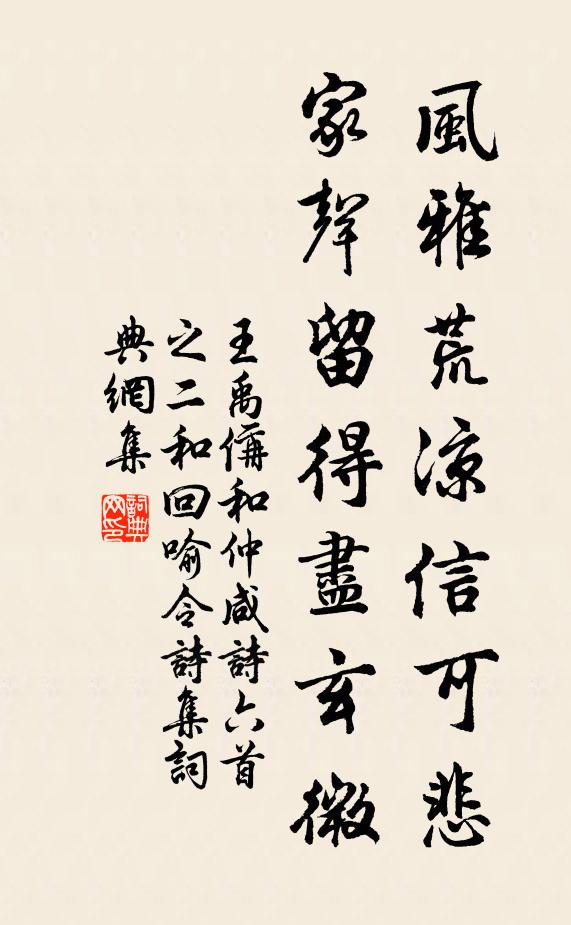 風雅荒涼信可悲
家聲留得盡玄微
王禹偁和仲咸詩六首
之二和回喻今詩集詞
典網集
詞典網印